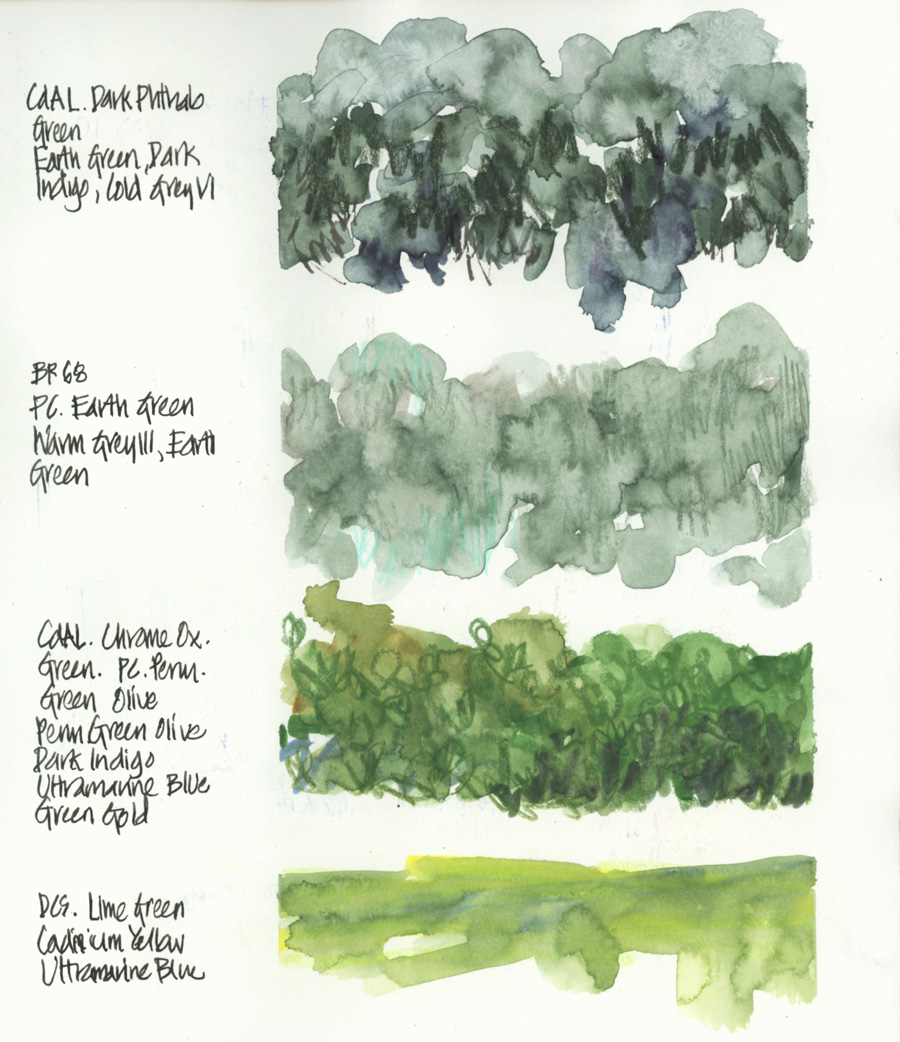 CdAL. Dark Phthalo
Green
Earth Green, Dark
Indigo, Cold Grey VI
BR 68
PC. Earth Green
Warm Grey III, Earth
Green
CdAL. Chrome Ox.
Green. PC. Perm.
Green Olive
Perm Green Olive
Dark Indigo
Ultramarine Blue
Green Gold
DCS. Lime Green
Cadmium Yellow
Ultramarine Blue